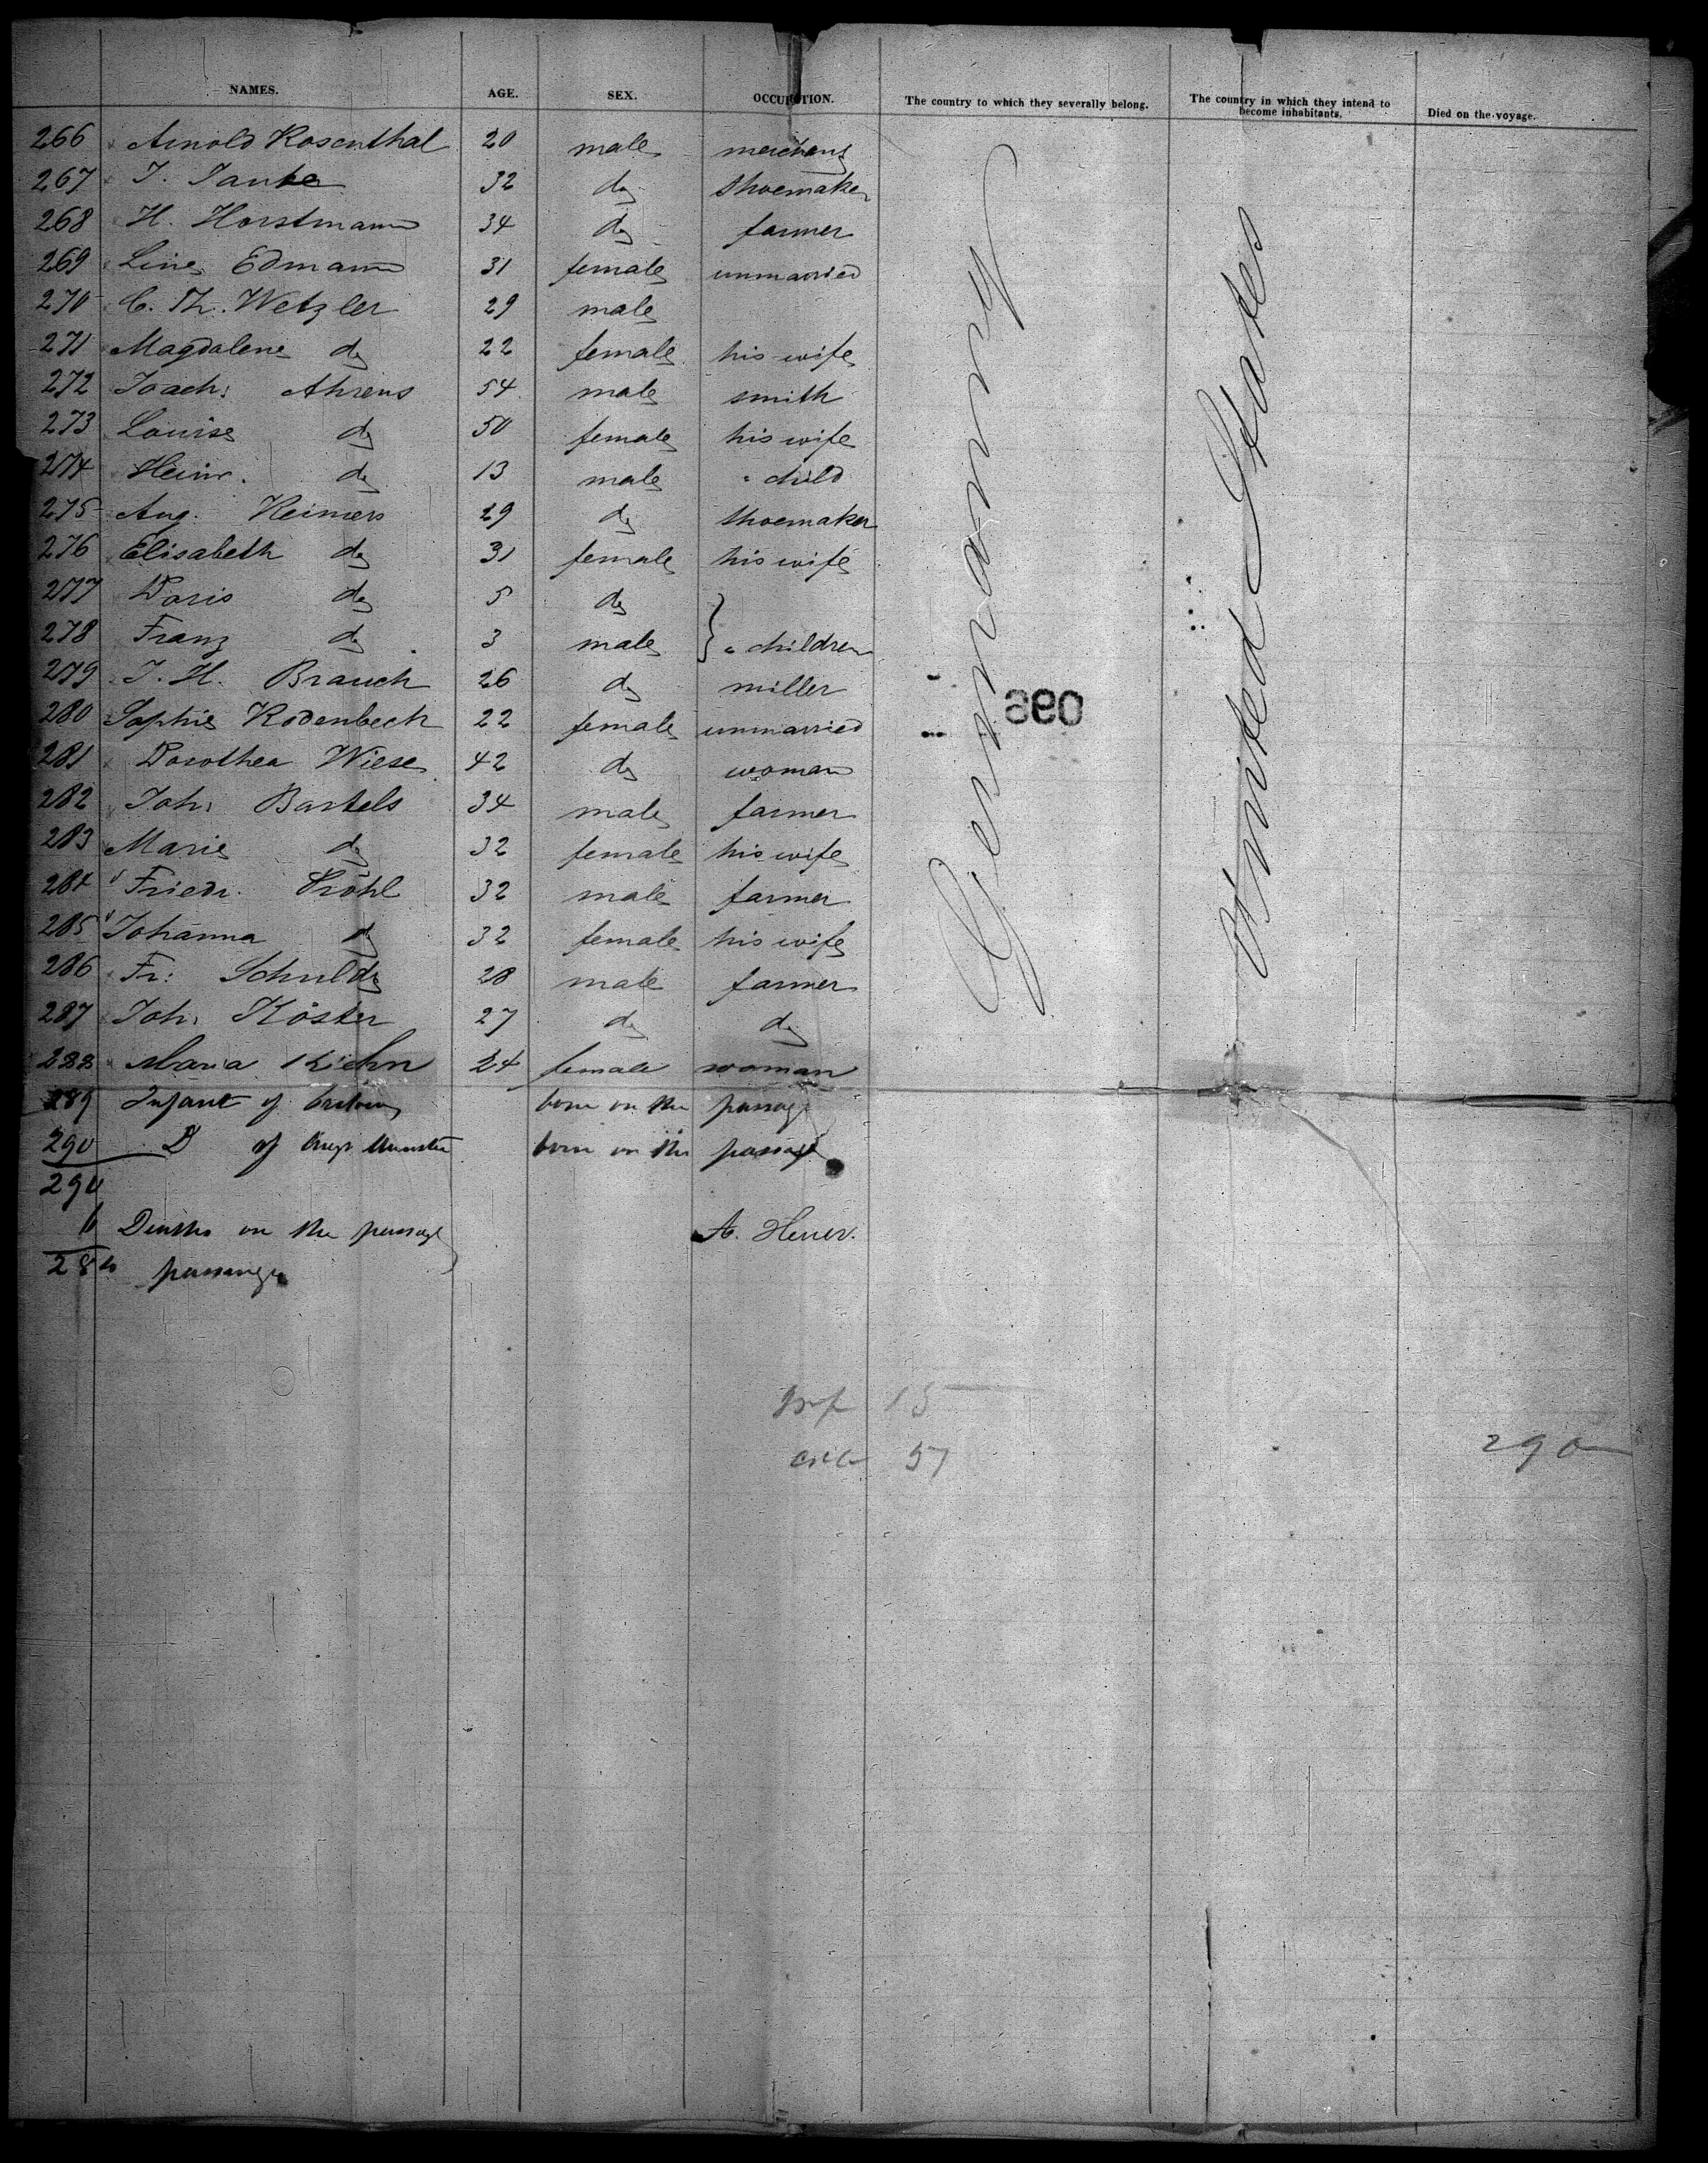 NAMES. AGE. SEX. OCCUPATION. The country to which they severally belong. The country in which they intend to become inhabitants. Died on the voyage.
266 Arnold Rosenthal 20 male merchant
267 J. Tanke 32 do shoemaker
268 H. Horstmann 34 do farmer
269 Line Edmann 31 female unmarried
270 C. Th. Wetzler 29 male
271 Magdalene do 22 female his wife
272 Joach: Ahrens 54 male smith
273 Louise do 50 female his wife
274 Heinr. do 13 male " child
275 Aug. Reimers 29 do shoemaker
276 Elisabeth do 31 female his wife
277 Doris do 5 do
278 Franz do 3 male } " children
279 J. H. Brauch 26 do miller
280 Sophie Rodenbeck 22 female unmarried
281 Dorothea Wiese 42 do woman
282 Joh: Bartels 34 male farmer
283 Marie do 32 female his wife
284 Friedr. Pröhl 32 male farmer
285 Johanna do 32 female his wife
286 Fr: Schuldt 28 male farmer
287 Joh: Köster 27 do do
288 Maria Kiehn 24 female woman
Germany
United States
060
289 Infant of born on the passage
290 D of born on the passage
290
6 Deaths on the passage A. Heuer.
284 passengers
Inf 15
57
290